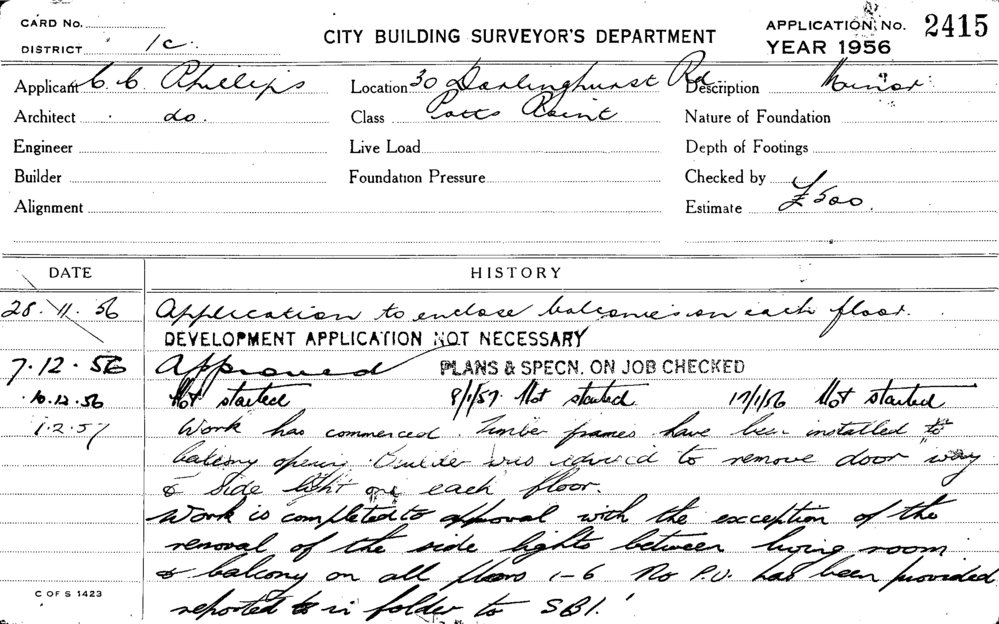 CARD No.
DISTRICT 1c.
CITY BUILDING SURVEYOR'S DEPARTMENT
APPLICATION No. 2415
YEAR 1956
Applicant C. C. Phillips Location 30 Darlinghurst Rd Description Minor
Architect do. Class Potts Point Nature of Foundation
Engineer Live Load Depth of Footings
Builder Foundation Pressure Checked by
Alignment Estimate £500.
DATE HISTORY
28.11.56 Application to enclose balconies on each floor.
DEVELOPMENT APPLICATION NOT NECESSARY
7.12.56 Approved PLANS & SPECN. ON JOB CHECKED
10.12.56 Not started 8/1/57 Not started 17/1/56 Not started
1.2.57 Work has commenced. Timber frames have been installed to
balcony opening. Builder was advised to remove door way
& side light on each floor.
Work is completed to approval with the exception of the
removal of the side lights between living room
& balcony on all floors 1-6 No P.V. has been provided
reported to in folder to SBI.
C OF S 1423